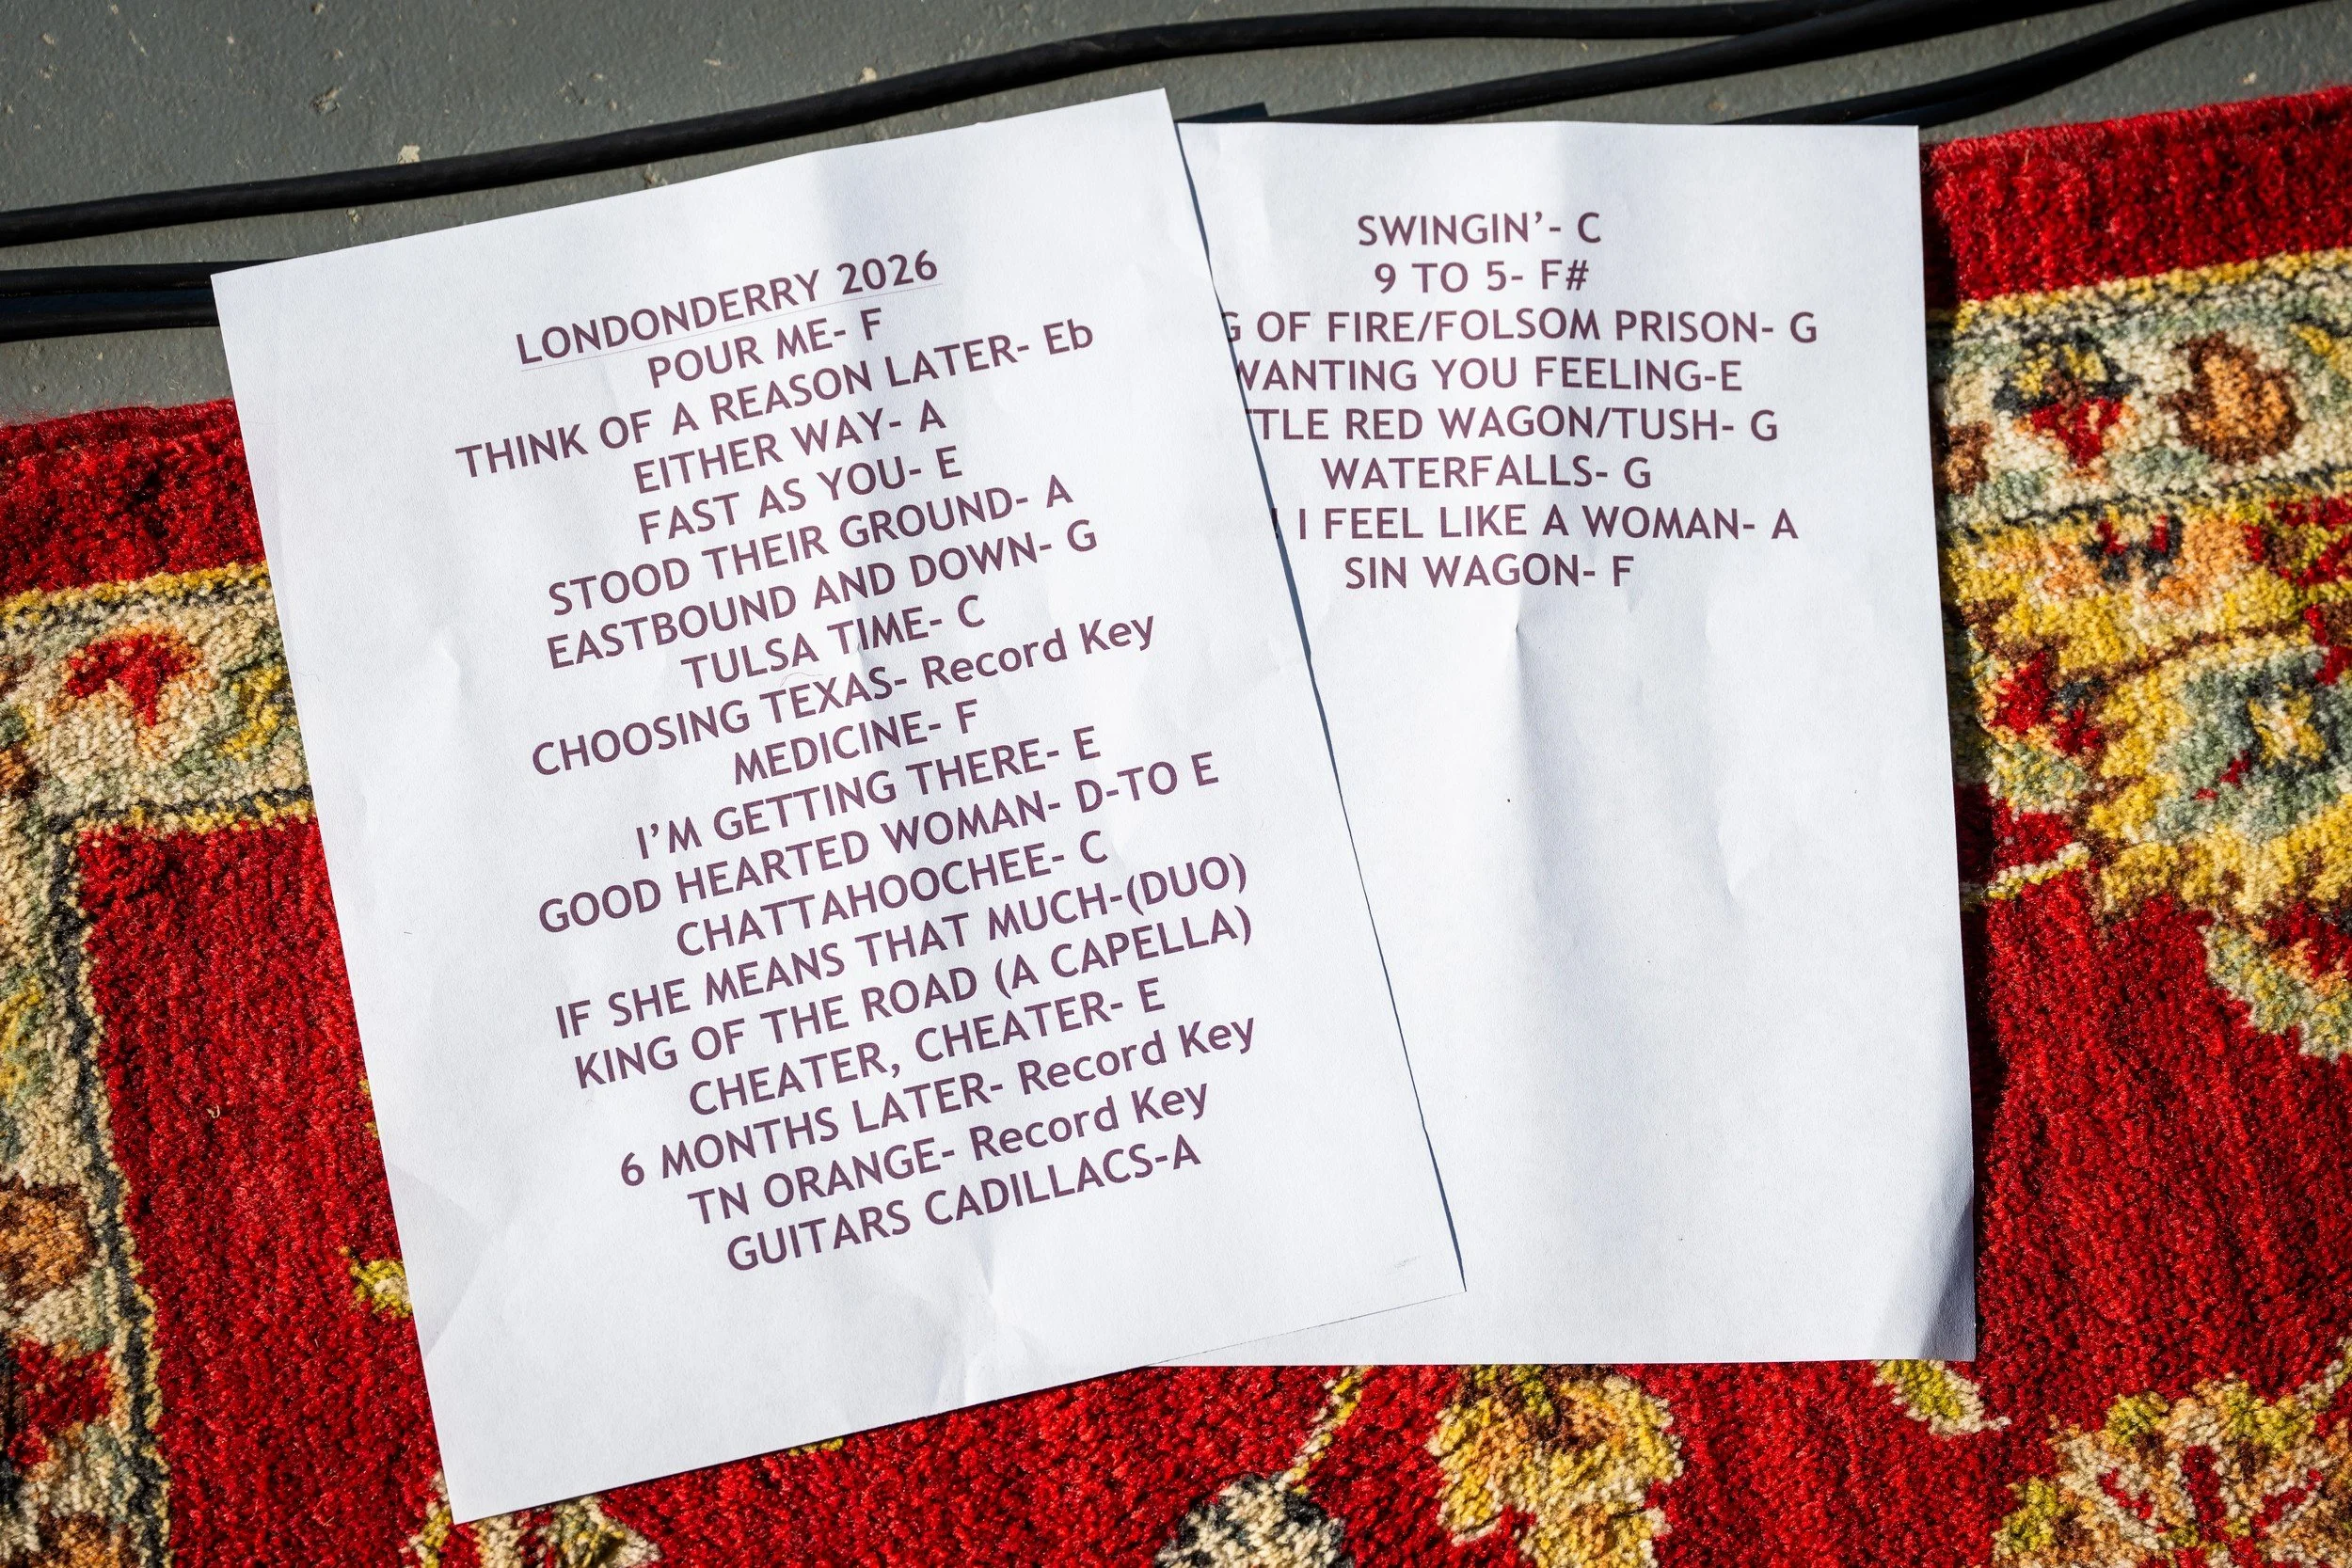 LONDONDERRY 2026
POUR ME- F
THINK OF A REASON LATER- Eb
EITHER WAY- A
FAST AS YOU- E
STOOD THEIR GROUND- A
EASTBOUND AND DOWN- G
TULSA TIME- C
CHOOSING TEXAS- Record Key
MEDICINE- F
I’M GETTING THERE- E
GOOD HEARTED WOMAN- D-TO E
CHATTAHOOCHEE- C
IF SHE MEANS THAT MUCH-(DUO)
KING OF THE ROAD (A CAPELLA)
CHEATER, CHEATER- E
6 MONTHS LATER- Record Key
TN ORANGE- Record Key
GUITARS CADILLACS-A
SWINGIN’- C
9 TO 5- F#
OF FIRE/FOLSOM PRISON- G
WANTING YOU FEELING-E
TLE RED WAGON/TUSH- G
WATERFALLS- G
I FEEL LIKE A WOMAN- A
SIN WAGON- F